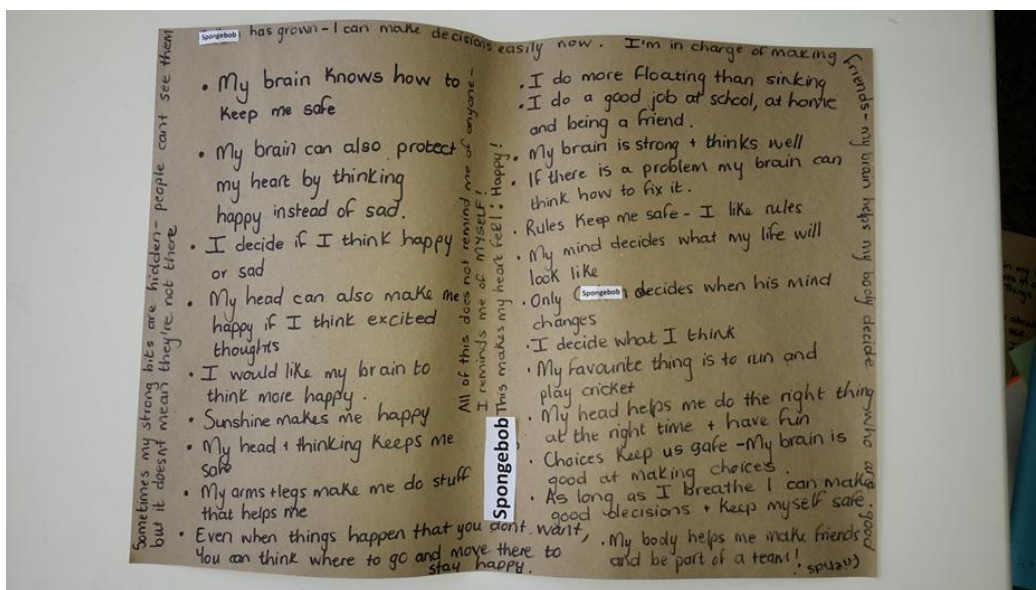 Spongebob has grown - I can make decisions easily now. I'm in charge of making
friends - my brain helps my body decide who are good
friends!
Sometimes my strong bits are hidden - people cant see them
but it doesnt mean they're not there
• My brain knows how to
keep me safe
• My brain can also protect
my heart by thinking
happy instead of sad.
• I decide if I think happy
or sad
• My head can also make me
happy if I think excited
thoughts
• I would like my brain to
think more happy.
• Sunshine makes me happy
• My head + thinking keeps me
safe
• My arms + legs make me do stuff
that helps me
• Even when things happen that you dont want,
You can think where to go and move there to
stay happy.
All of this does not remind me of anyone -
I reminds me of MYSELF!
This makes my heart feel: Happy!
Spongebob
• I do more floating than sinking
• I do a good job at school, at home
and being a friend.
• My brain is strong + thinks well
• If there is a problem my brain can
think how to fix it.
• Rules keep me safe - I like rules
• My mind decides what my life will
look like
• Only Spongebob decides when his mind
changes
• I decide what I think
• My favourite thing is to run and
play cricket
• My head helps me do the right thing
at the right time + have fun
• Choices keep us safe - My brain is
good at making choices.
• As long as I breathe I can make
good decisions + keep myself safe.
• My body helps me make friends
and be part of a team!